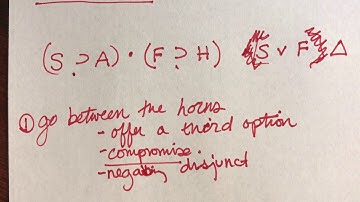 (S ⊃ A) • (F ⊃ H) S v F △
① go between the horns
- offer a third option
- compromise.
- negating disjunct